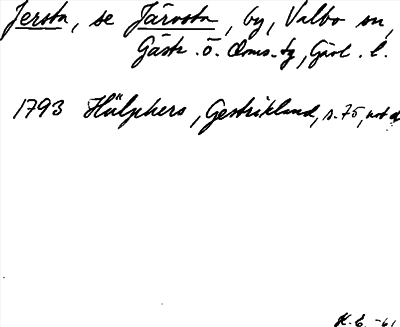 Jersta, se Järvsta, by, Valbo sn,
Gästr. ö. doms. tg, Gävl. l.
1793 Hülphers, Gestrikland, s. 75, not d
H. E. -61